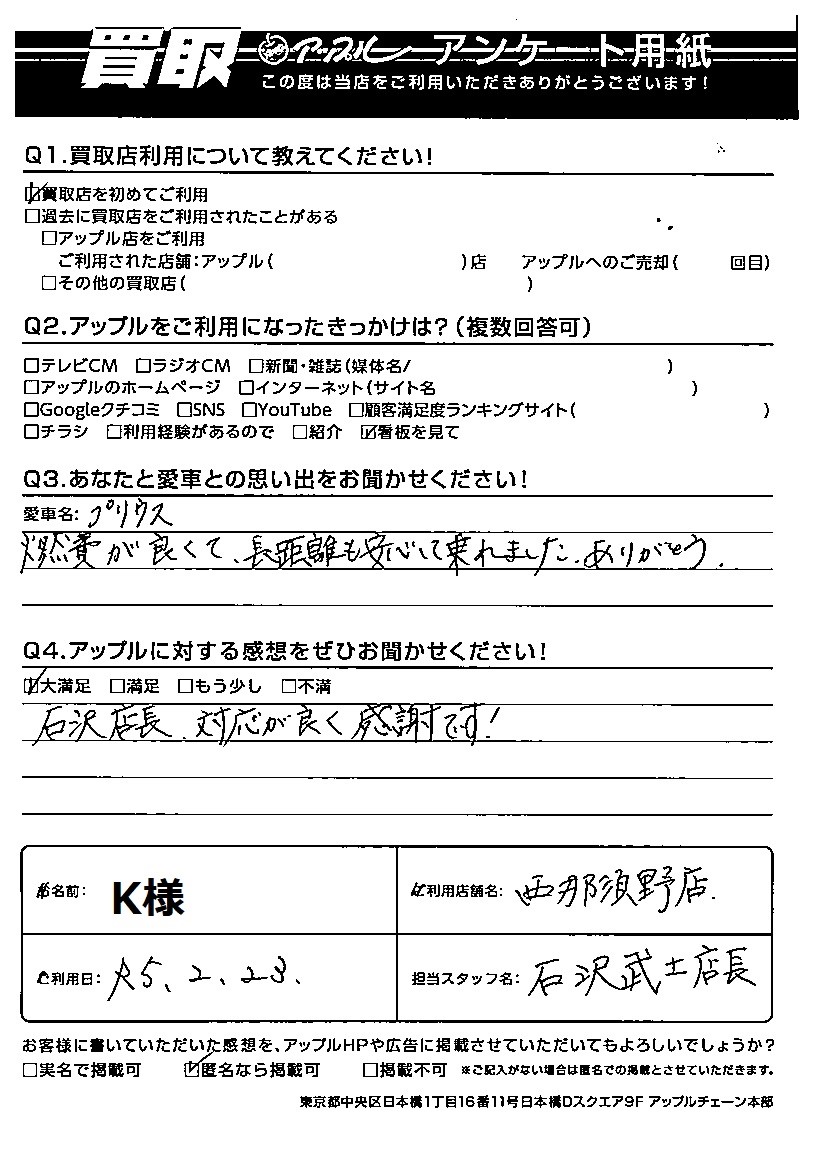 買取 アップル アンケート用紙
この度は当店をご利用いただきありがとうございます!
Q1.買取店利用について教えてください!
☑買取店を初めてご利用
□過去に買取店をご利用されたことがある
□アップル店をご利用
ご利用された店舗:アップル( )店 アップルへのご売却( 回目)
□その他の買取店( )
Q2.アップルをご利用になったきっかけは?(複数回答可)
□テレビCM □ラジオCM □新聞・雑誌(媒体名/ )
□アップルのホームページ □インターネット(サイト名 )
□Googleクチコミ □SNS □YouTube □顧客満足度ランキングサイト( )
□チラシ □利用経験があるので □紹介 ☑看板を見て
Q3.あなたと愛車との思い出をお聞かせください!
愛車名: プリウス
燃費が良くて、長距離も安心して乗れました。ありがとう。
Q4.アップルに対する感想をぜひお聞かせください!
☑大満足 □満足 □もう少し □不満
石沢店長、対応が良く感謝です!
お名前: K様
ご利用店舗名: 西那須野店.
ご利用日: R5、2、23、
担当スタッフ名: 石沢武士店長
お客様に書いていただいた感想を、アップルHPや広告に掲載させていただいてもよろしいでしょうか?
□実名で掲載可 ☑匿名なら掲載可 □掲載不可 ※ご記入がない場合は匿名での掲載とさせていただきます。
東京都中央区日本橋1丁目16番11号日本橋Dスクエア9F アップルチェーン本部